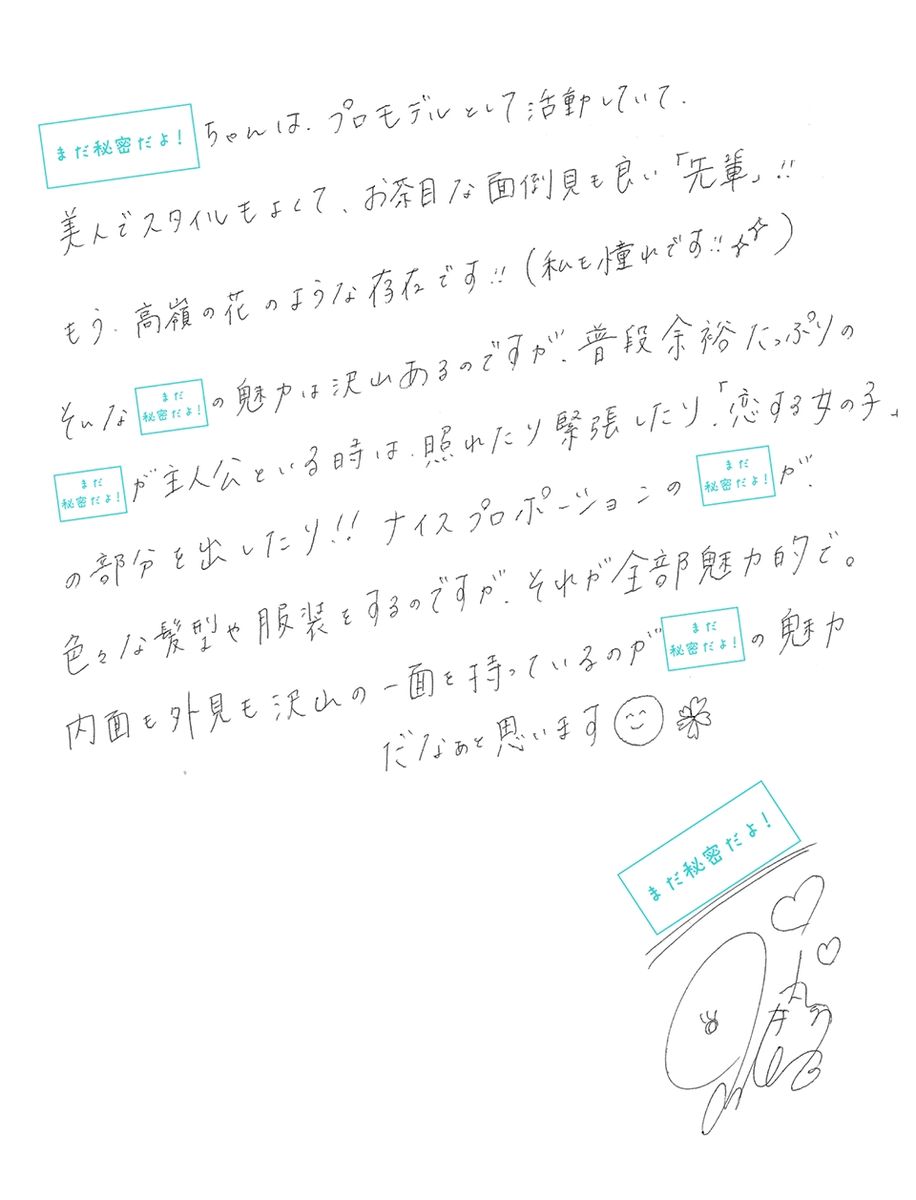 まだ秘密だよ!ちゃんは、プロモデルとして活動していて、
美人でスタイルもよくて、お茶目な面倒見も良い「先輩」!!
もう、高嶺の花のような存在です!!(私も憧れです!!)
そんなまだ秘密だよ!の魅力は沢山あるのですが、普段余裕たっぷりの
まだ秘密だよ!が主人公といる時は、照れたり緊張したり、「恋する女の子」
の部分を出したり!!ナイスプロポーションのまだ秘密だよ!が、
色々な髪型や服装をするのですが、それが全部魅力的で。
内面も外見も沢山の一面を持っているのがまだ秘密だよ!の魅力
だなぁと思います
まだ秘密だよ!